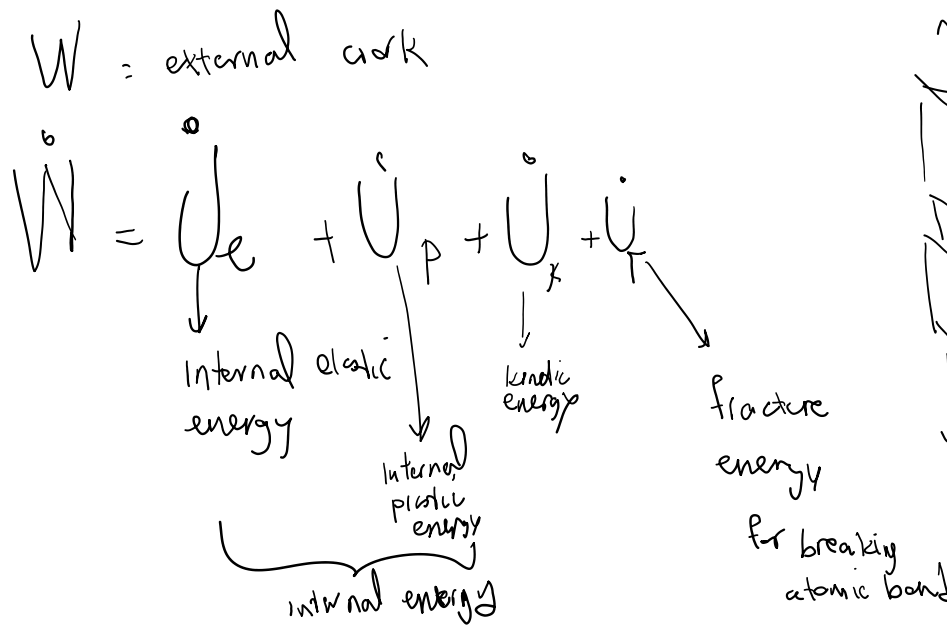 W = external work
Ẇ = U̇e + U̇p + U̇k + U̇Γ
Internal elastic
energy
Internal
plastic
energy
kinetic
energy
fracture
energy
for breaking
atomic bond
internal energy